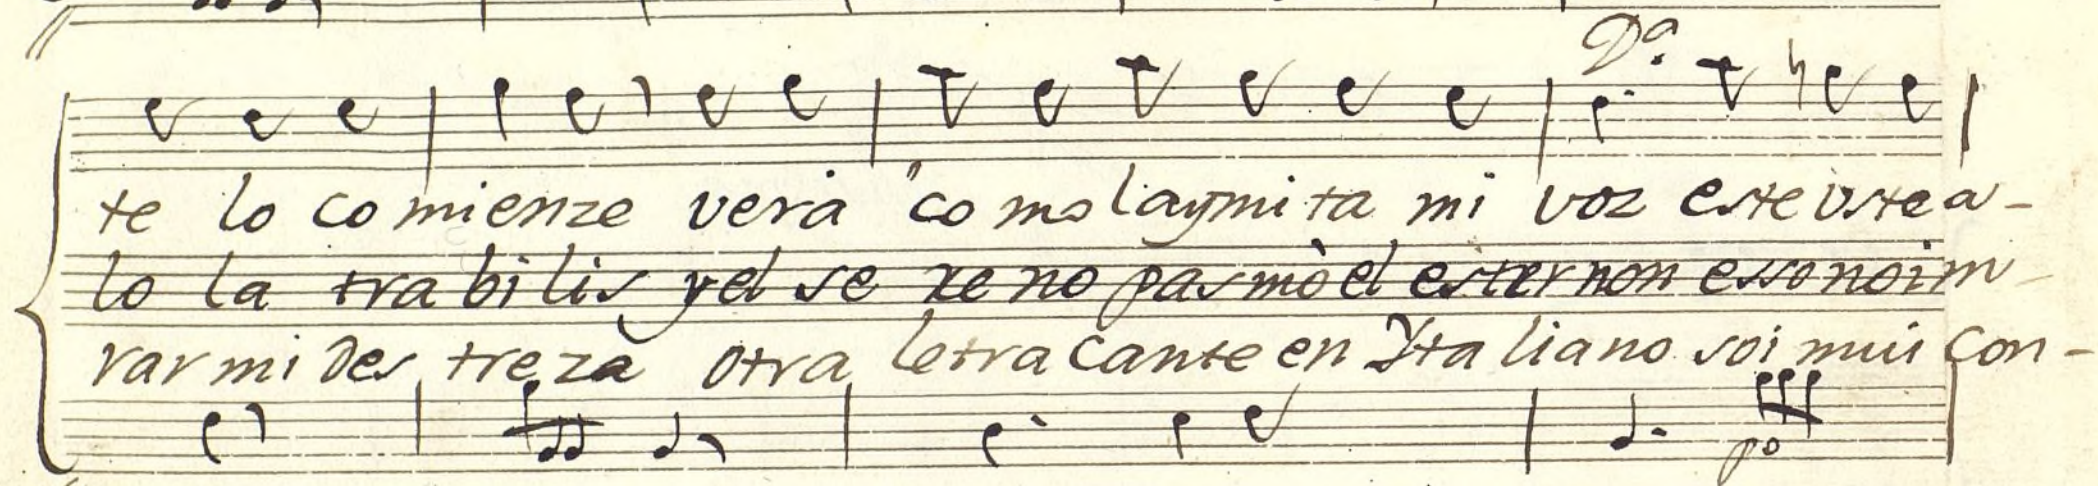 Dª.
te lo co mienze verà co mo laymi ta mi voz este uste a-
lo la tra bi lis y el se re no pasmò el esternon esso no im-
rar mi des treza otra letra cante en Ytaliano soi mui con-
po